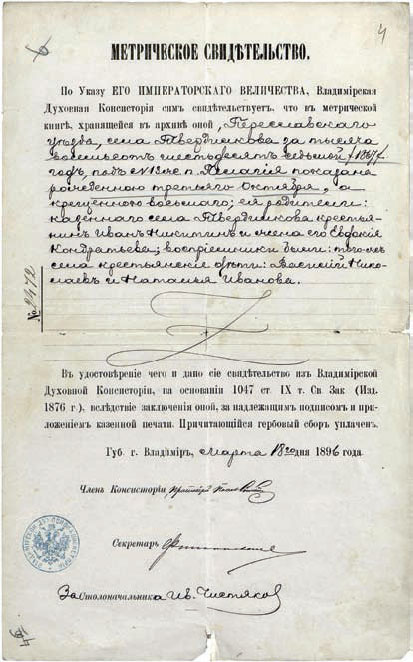 4
МЕТРИЧЕСКОЕ СВИДѢТЕЛЬСТВО.
По Указу ЕГО ИМПЕРАТОРСКАГО ВЕЛИЧЕСТВА, Владимірская
Духовная Консисторія симъ свидѣтельствуетъ, что въ метрической
книгѣ, хранящейся въ архивѣ оной, Переславскаго
уѣзда, села Твердилкова за тысяча
восемьсотъ шестьдесятъ седьмой /1867/
годъ, подъ № 13 ж. п. Пелагія показана
рожденною третьяго Октября, а
крещенною восьмаго; ея родители:
казеннаго села Твердилкова крестья-
нинъ Иванъ Никитинъ и жена его Евдокія
Кондратьева; воспріемники были: того же
села крестьянскіе дѣти: Василій Нико-
лаевъ и Наталья Иванова.
№ 2472
Въ удостовѣреніе чего и дано сіе свидѣтельство изъ Владимірской
Духовной Консисторіи, на основаніи 1047 ст. IX т. Св. Зак (Изд.
1876 г.), вслѣдствіе заключенія оной, за надлежащимъ подписомъ и при-
ложеніемъ казенной печати. Причитающійся гербовый сборъ уплаченъ.
Губ. г. Владиміръ, Марта 18го дня 1896 года.
Членъ Консисторіи Протоіерей
Секретарь
За Столоначальника Ив. Чистяков